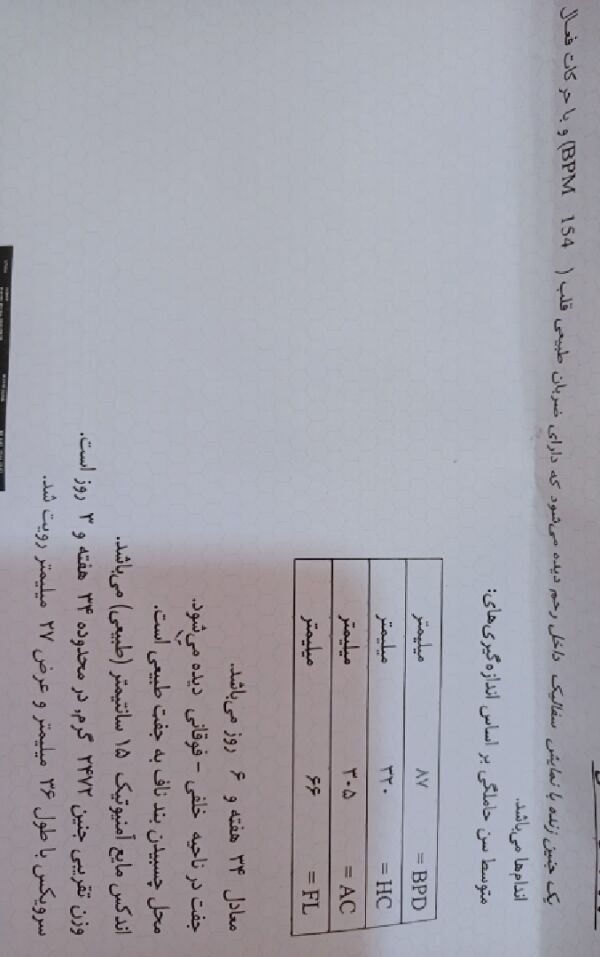 یک جنین زنده با نمایش سفالیک داخل رحم دیده می‌شود که دارای ضربان طبیعی قلب ( BPM 154) و با حرکات فعال
اندامها می‌باشد.
متوسط سن حاملگی بر اساس اندازه گیری‌های:
BPD = ۸۷ میلیمتر
HC = ۳۲۰ میلیمتر
AC = ۳۰۵ میلیمتر
FL = ۶۶ میلیمتر
معادل ۳۴ هفته و ۶ روز می‌باشد.
جفت در ناحیه خلفی - فوقانی دیده می‌شود.
محل چسبیدن بند ناف به جفت طبیعی است.
اندکس مایع آمنیوتیک ۱۵ سانتیمتر (طبیعی) می‌باشد.
وزن تقریبی جنین ۲۴۷۲ گرم، در محدوده ۳۴ هفته و ۳ روز است.
سرویکس با طول ۳۶ میلیمتر و عرض ۲۷ میلیمتر رویت شد.